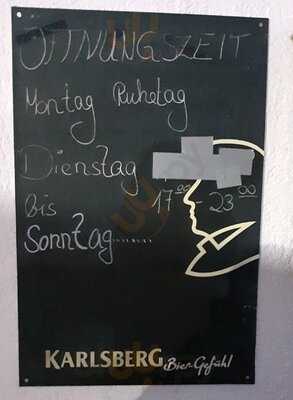 ÖFFNUNGSZEIT
Montag Ruhetag
Dienstag
17⁰⁰ - 23⁰⁰
bis
Sonntag........
KARLSBERG Bier-Gefühl